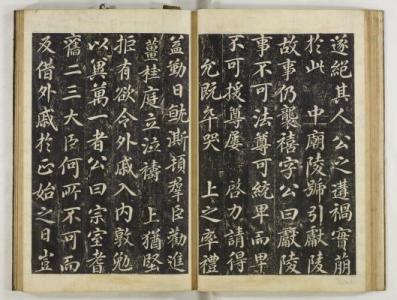 遂絕其人公之遘禍實萠
於此 中廟陵號引獻陵
故事仍襲禧字公曰獻陵
事不可法尊可統卑而卑
不可援尊屢 啓力請得
允旣卒哭 上之率禮
益勤日就澌頓羣臣勸進
薑桂庭立泣禱 上猶堅
拒有欲令外戚入內敦勉
以冀萬一者公曰宗室耆
舊二三大臣何所不可而
及借外戚於正始之日豈